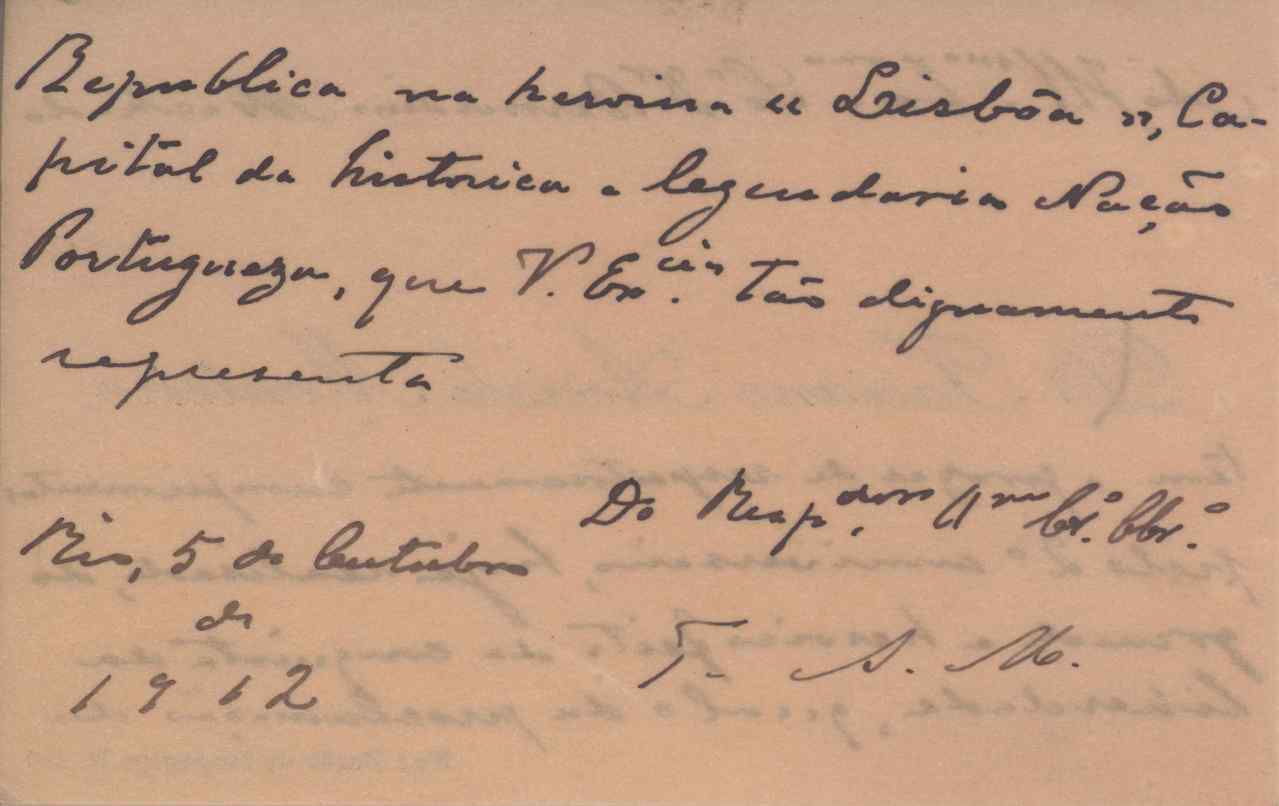 Republica na heroina « Lisbôa », Ca-
pital da historica e legendaria Nação
Portugueza, que V. Ex.cia tão dignamente
representa
Do Resp.doro Am.o Cr.o Obr.o
Rio, 5 de Outubro
de
1912
T. A. M.